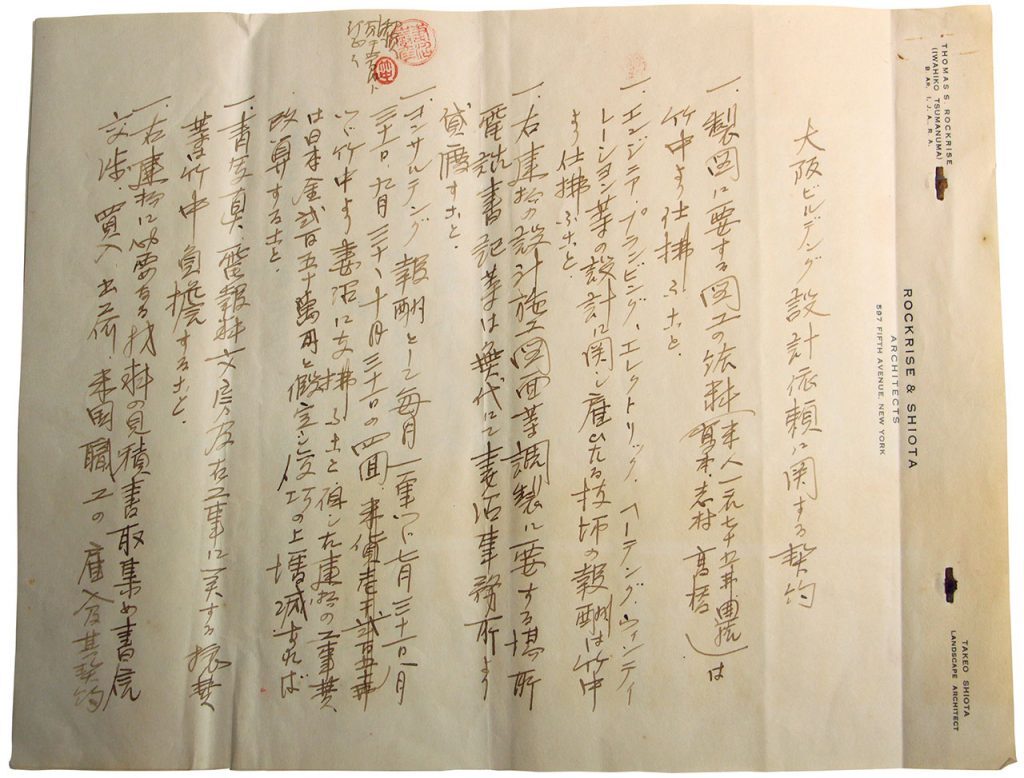 THOMAS S. ROCKRISE
(IWAHIKO TSUMANUMA)
B. AR. I. J. A., R. A.
ROCKRISE & SHIOTA
ARCHITECTS
597 FIFTH AVENUE, NEW YORK
TAKEO SHIOTA
LANDSCAPE ARCHITECT
大阪ビルデング設計依頼に関する契約
一、製図に要する図工の給料
は
竹中より仕拂ふこと
一、エンジニア・プラビング、エレクトリック、ヒーテング、ヴェンティ
レーション等の設計に関し雇ひたる技師の報酬は竹中
より仕拂ふこと
一、右建物の設計施工図面等調製に要する場所
電話書記等は無代にて妻沼事務所より
貸渡すこと
一、コンサルテング報酬として毎月
七月三十一日八月
三十一日九月三十日十月三十一日の四回
竹中より妻沼に支拂ふこと但し右建物の工事費
は日本金弐百五十萬円と仮定し
の上増減あれば
改算すること
一、青写真電報料文房及右工事に関する
費
等は竹中負擔すること
一、右建物に必要なる材料の見積書取集め書信
交渉、買入、出荷、米国職工の雇入及其契約